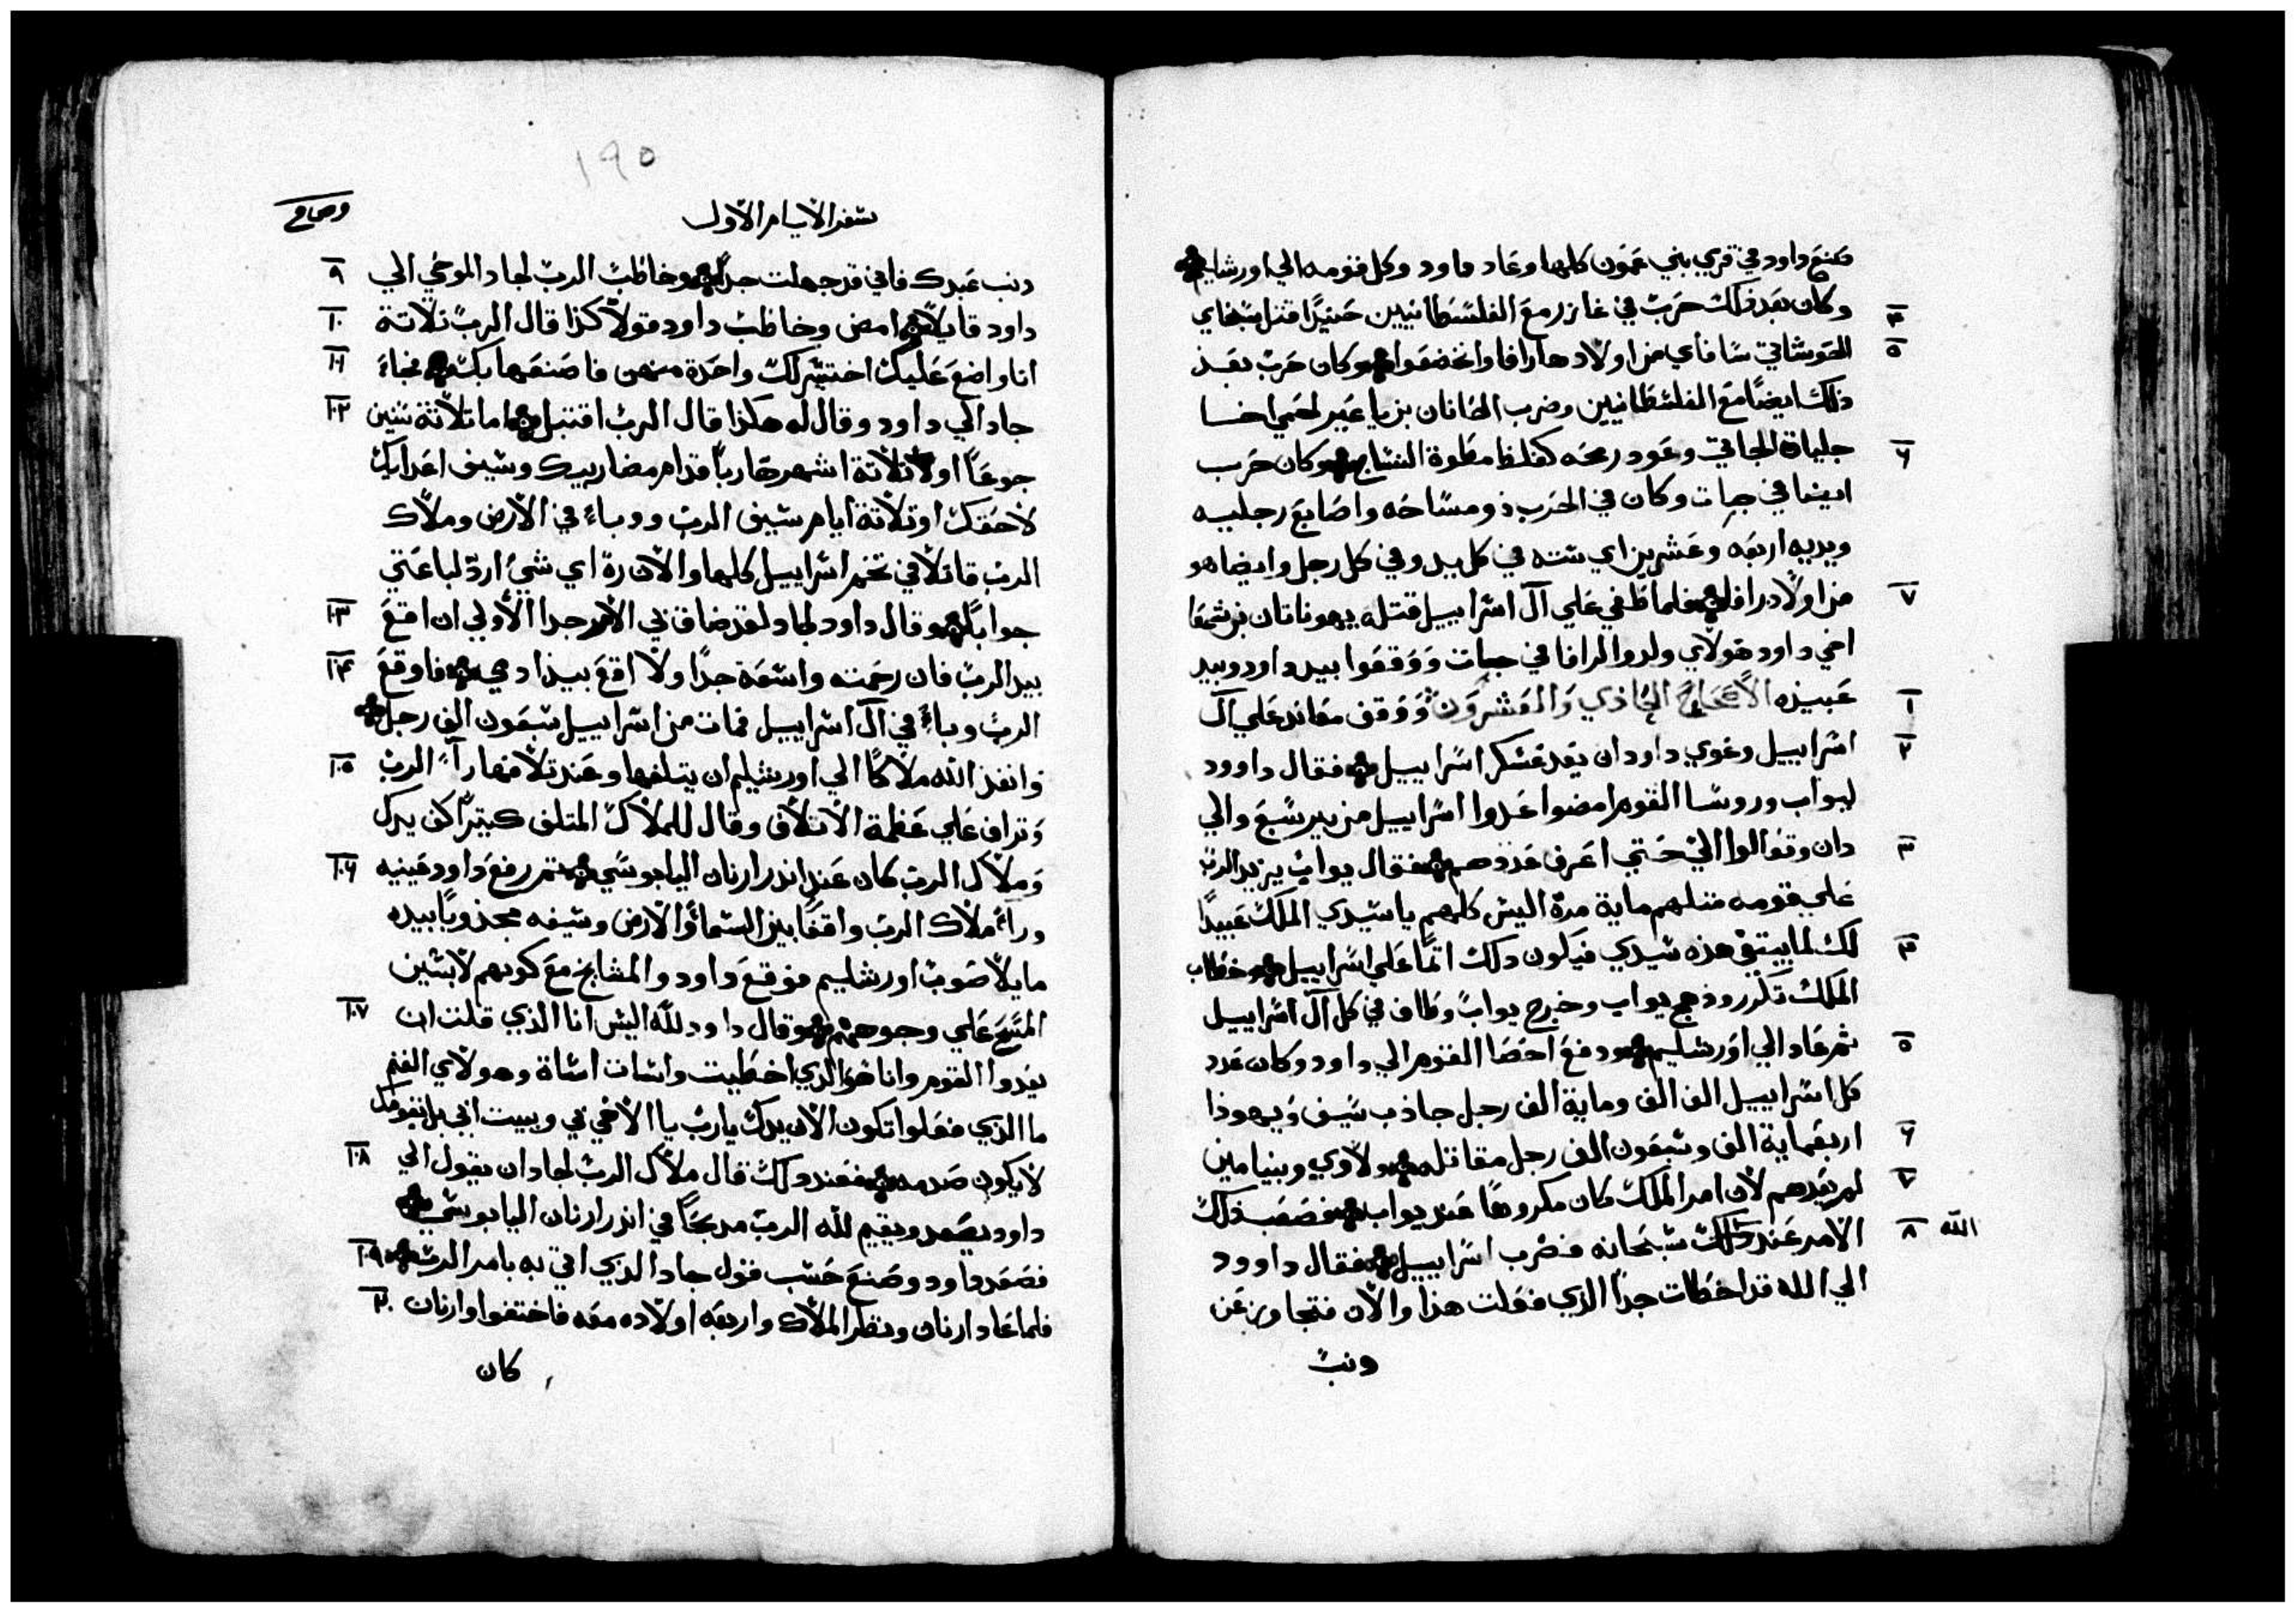 صنع داود في قري بني عمون كلها وعاد داود وكل قومه الي اورشليم
وكان بعد ذلك حرب في غازر مع الفلسطانيين حينيدًا قتل سبخاي ٤
الحوشاتي سافاي من اولاد هارافا واتخضعوا وكان حرب بعد ٥
ذلك ايضًا مع الفلسطانيين وضرب الحانان بن ياعير لحمي اخا
جلياة الجاتي وعود رمحه كغلظ مطوة النساج وكان حرب ٦
ايضا في جات وكان في الحرب ذو مساحه واصابع رجليه
ويديه اربعه وعشرين اي سته في كل يد وفي كل رجل وايضا هو
من اولاد رافا فلما طغي علي آل اسراييل قتله يهوناتان بن شمعا ٧
اخي داود هولاي ولدوا لرافا في جات ووقعوا بيد داود وبيد
عبيده الاصحاح الحادي والعشرون ووقف معاند علي آل ١
اسراييل وغوي داود ان يعد عسكر اسراييل فقال داوود ٢
ليواب وروسا القوم امضوا عدوا اسراييل من بير سبع والي
دان وتعالوا الي حتي اعرف عددهم فقال يواب يزيد الرب ٣
علي قومه مثلهم ماية مرة اليس كلهم يا سيدي الملك عبيدًا
لك لما يبتغي هذه سيدي فيكون دلك اثمًا علي اسراييل وخطاب ٤
الملك تكرر وزهج يواب وخرج يواب وطاف في كل آل اسراييل
ثم عاد الي اورشليم ودفع احصا القوم الي داود وكان عدد ٥
كل اسراييل الف الف وماية الف رجل جاذب سيف ويهوذا
اربعماية الف وسبعون الف رجل مقاتله ولاوي وبنيامين ٦
لم يعدهم لان امر الملك كان مكروهًا عند يواب فصعب ذلك ٧
الامر عند ذلك سبحانه فضرب اسراييل فقال داوود ٨ الله
الي الله قد اخطات جدًا الذي فعلت هذا والان فتجاوز عن
دنب
١٩٥
سفر الايام الاول
دنب عبدك فاني قد جهلت جدًا وخاطب الرب لجاد الموحي الي ٩
داود قايلًا امض وخاطب داود قولًا كذا قال الرب تلاتة ١٠
انا واضع عليك اختير لك واحدة منهن فاصنعها بك فجاء ١١
جاد الي داود وقال له هكذا قال الرب اقتبل اما تلاتة سنين ١٢
جوعًا او تلاتة اشهر هاربًا قدام مضاربيك وسيف اعدايك
لاحقك او تلاتة ايام سيف الرب ووباء في الارض وملاك
الرب قاتلًا في تخم اسراييل كلها والان ره اي شيء ارد لباعتي
جوابًا وقال داود لجاد لقد ضاق بي الامر جدا الاولي ان اقع ١٣
بيد الرب فان رحمته واسعة جدًا ولا اقع بيد ادمي فاوقع ١٤
الرب وباء في آل اسراييل فمات من اسراييل سبعون الف رجل
وانفذ الله ملاكًا الي اورشليم ان يتلفها وعند تلافها رآء الرب ١٥
وتراف علي عظمة الاتلاف وقال للملاك المتلف كتيرًا كف يدك
وملاك الرب كان عند اندر ارنان اليابوسي تم رفع داود عينيه ١٦
وراء ملاك الرب واقفًا بين السماء والارض وسيفه مجذوبًا بيده
مايلًا صوب اورشليم فوقع داود والمشايخ مع كونهم لابسين
المسح علي وجوههم وقال داود لله اليس انا الذي قلت ان ١٧
يعدوا القوم وانا هو الذي اخطيت واسات اساة وهولاي الغنم
ما الذي فعلوا تكون الان يدك يارب يا الاهي في وبيت ابي بل بقومك
لا يكون صدمه فعند دلك قال ملاك الرب لجاد ان يقول الي ١٨
داود يصعد ويقيم لله الرب مدبحًا في اندر ارنان اليابوسي
فصعد داود وصنع حسب قول جاد الذي اتي به بامر الرب ١٩
فلما عاد ارنان ونظر الملاك واربعه اولاده معه فاختفوا وارنان ٢٠
كان